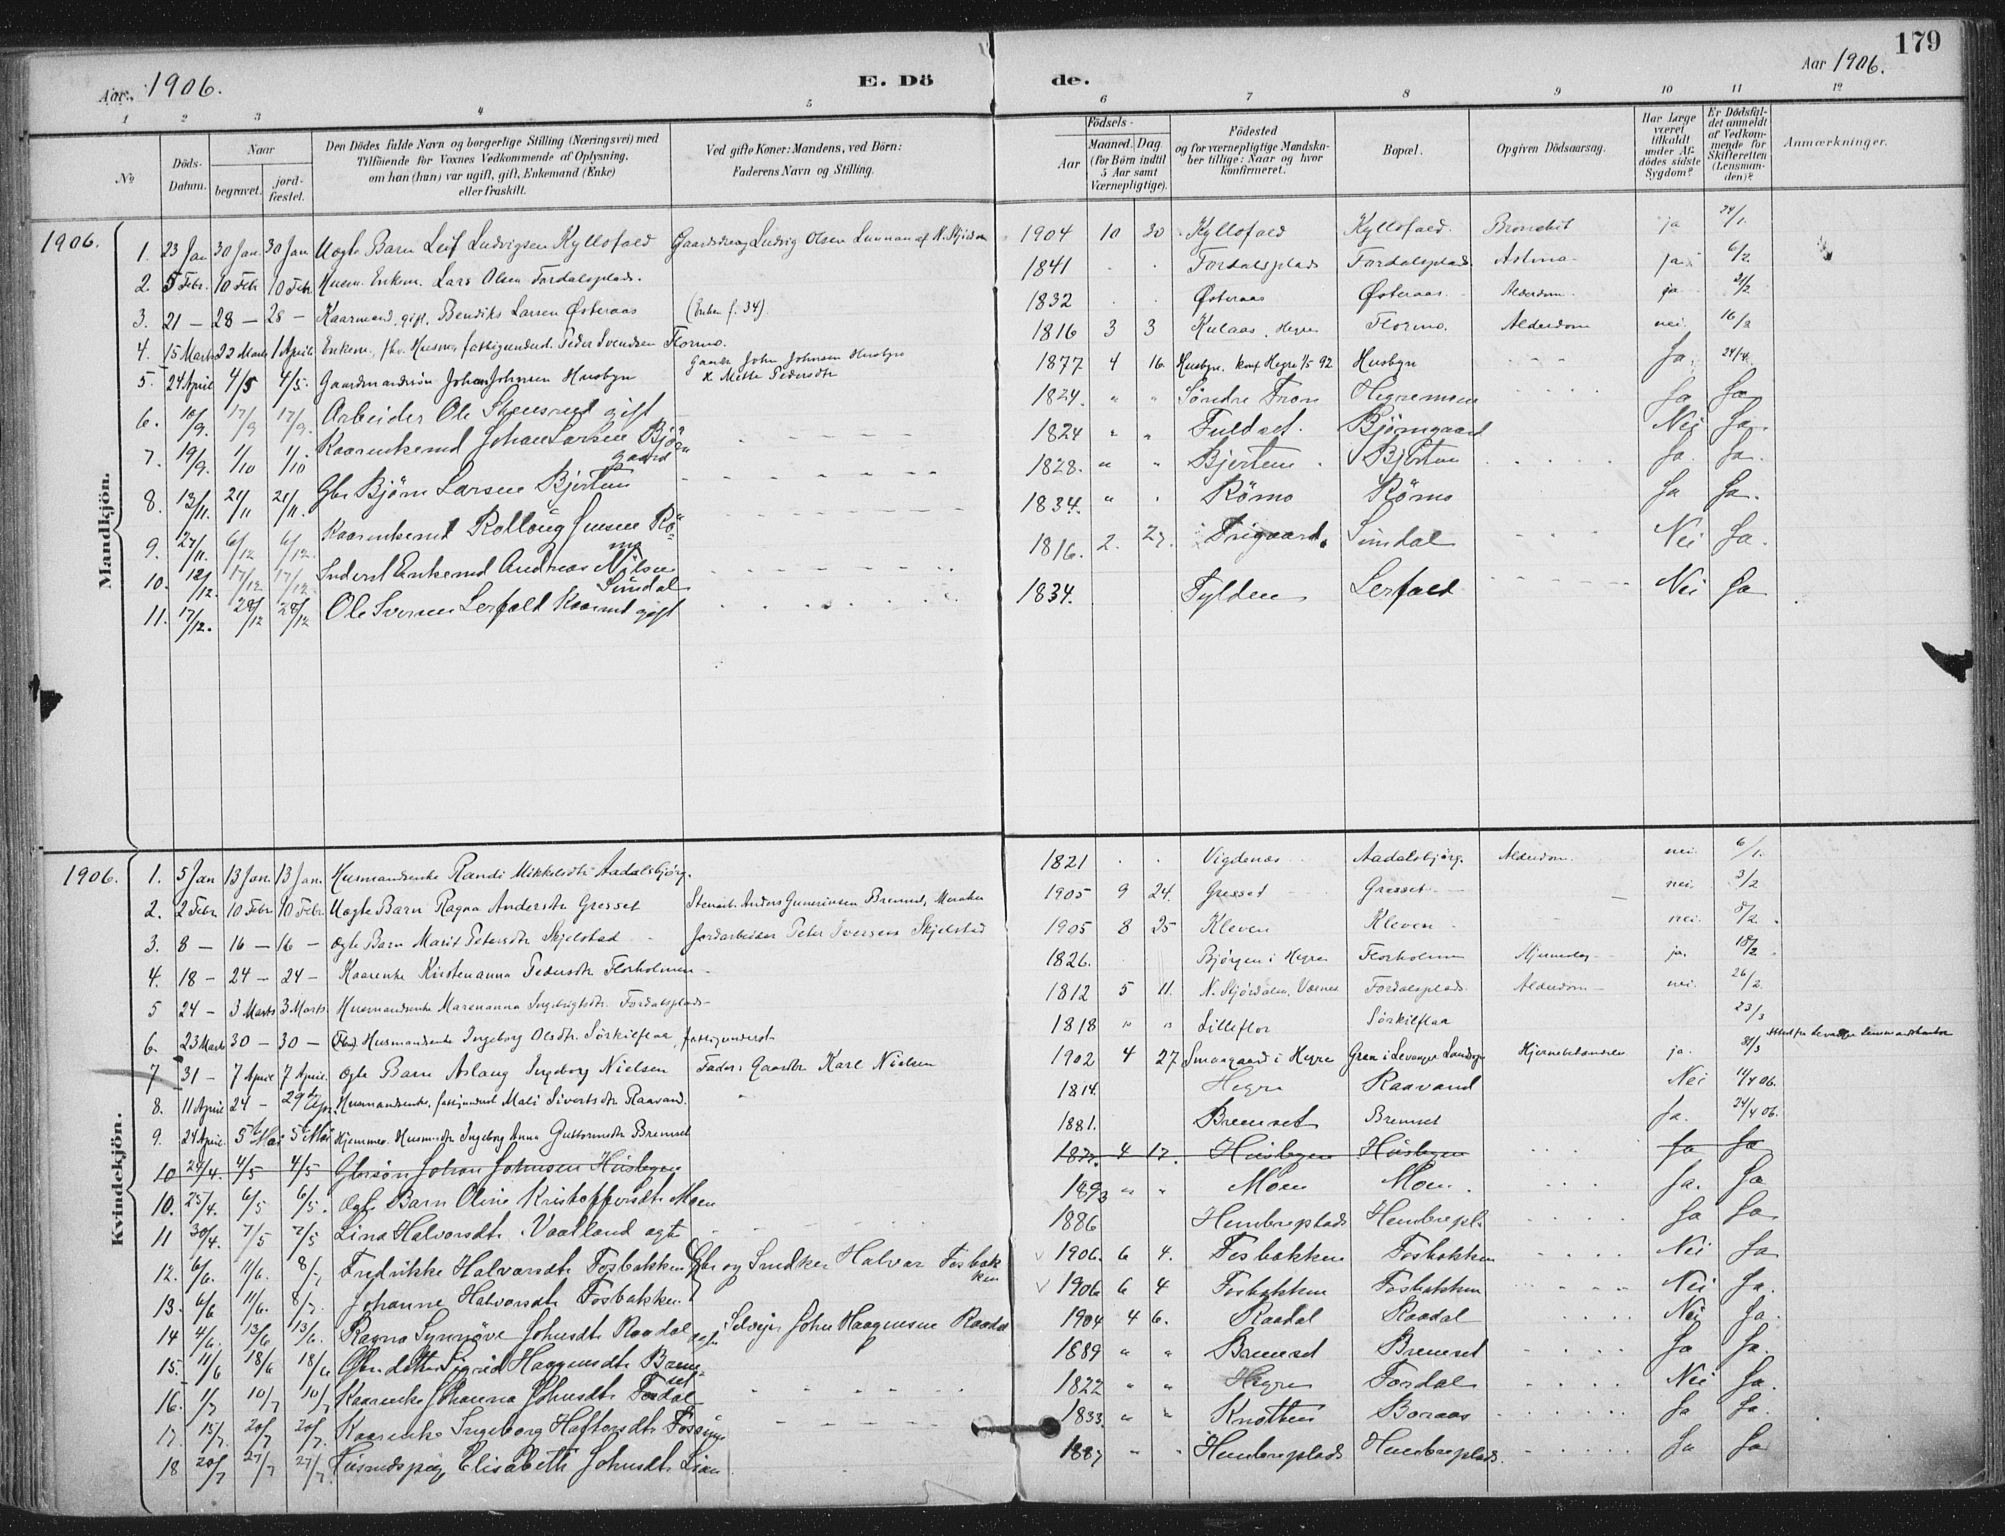 179
Aar 1906. E. Dö de. Aar 1906.
1 2 3 4 5 6 7 8 9 10 11 12
№ Döds-Datum. Naar begravet. jord-fæstet. Den Dödes fulde Navn og borgerlige Stilling (Næringsvei) med Tilföiende for Voxnes Vedkommende af Oplysning, om han (hun) var ugift, gift, Enkemand (Enke) eller fraskilt. Ved gifte Koner: Mandens, ved Börn: Faderens Navn og Stilling. Födsels- Aar Maaned. Dag (for Börn indtil 5 Aar samt Værnepligtige). Födested og for værnepligtige Mandskaber tillige: Naar og hvor konfirmeret. Bopæl. Opgiven Dödsaarsag. Har Læge været tilkaldt under Afdödes sidste Sygdom? Er Dödsfaldet anmeldt af Vedkommende for Skifteretten (Lensmanden)? Anmærkninger.
Mandkjön.
1906. 1. 23 Jan 30 Jan 30 Jan Uægte Barn Leif Ludvigsen Kyllofald Gaardsdreng Ludvig Olsen Lunnan af N. Stjördalen 1904 10 30 Kyllofald Kyllofald Bronchit ja 24/1.
2. 5 Febr. 10 Febr 10 Febr Husm. Enkem. Lars Olsen Fordalsplads. 1841 Fordalsplads Fordalsplads Astma ja 6/2
3. 21 – 28 – 28 – Kaarmand, gift, Bendiks Larsen Østeraas (Enken f. 34) 1832 Østeraas Østeraas Alderdom ja 2/2
4. 15 Marts 22 Marts 1 April Enkem., fhv. Husm., fattigunderst. Peder Svendsen Flormo. 1816 3 3 Kulaas, Hegre Flormo. Alderdom nei. 16/3
5. 24 April 4/5 4/5. Gaardmandssön Johan Johnsen Husbyn Gaardbr John Johnsen Husbyn & Mette Pedersdtr 1877 4 16 Husbyn. konf Hegre 1/5 92 Husbyn Ja. 24/4.
6. 10/9. 17/9 17/9. Arbeider Ole Stensrud gift 1824. " " Söndre Fron Hegremoen Ja Ja
7. 19/9. 1/10 1/10 Kaarenkemd Johan Larsen Björngaard 1824 " " Fuldset. Björngaard Nei Ja.
8. 13/11. 21/11 21/11. Gbr Björn Larsen Bjerten 1828. " " Bjerten Bjerten Ja. Ja.
9. 27/11. 6/12 6/12. Kaarenkemd Rollaug Jensen Römo 1834. " " Römo Römo Ja Ja.
10. 12/12. 17/12 17/12. Inderst Enkemd Andreas Nilsen Sundal 1816. 2. 27. Trigaard. Sundal Nei Ja.
11. 17/12. 28/12 28/12 Ole Iversen Lerfald Kaarmd gift 1834. Fylden Lerfald Nei Ja
Kvindekjön.
1906. 1. 5 Jan 13 Jan. 13 Jan. Husmandsenke Randi Mikkelsdtr Aadalsbjörg. 1821 Vigdenæs Aadalsbjörg. Alderdom. nei. 6/1.
2. 2 Febr 10 Febr 10 Febr. Uægte Barn Ragna Andersdtr Gresset Stenarb. Anders Gunneriusen Bremset, Meraker 1905 9 24. Gresset Gresset nei. 3/2
3. 8 – 16 – 16 – ægte Barn Marit Petersdtr Skjelstad Jordarbeider Peter Iversen Skjelstad 1905 8 25 Kleven Kleven nei. 8/2
4. 18 – 24 – 24 – Kaarenke Kirstenanna Pedersdtr Florholmen 1826. Bjørgen i Hegre Florholmen Hjerneslag ja. 18/2
5 24 – 3 Marts 3 Marts Husmandsenke Marenanna Ingebrigtsdtr. Fordalsplads 1812 5 11. N. Stjørdalen, Værnes Fordalsplads. Alderdom nei. 26/2
6. 23 Marts 30 – 30 – Husmandsenke Ingeborg Olsdtr Sörkilflaa, fattigunderst. 1818 " " Lilleflor Sörkilflaa 23/3
7 31 – 7 April 7 April. Ægte Barn Aslaug Ingeborg Nielsen Fader: Gaardbr Karl Nielsen 1902 4 27 Smaagaard i Hegre Gran i Levanger Landsogn Hjernebetændelse ja. 31/3
8. 11 April 24 – 29 Apr. Husmandsenke, fattigunderst Mali Sivertsdtr Raavand. 1814. Hegre Raavand Nei 11/4 06.
9. 24 April. 5te Mai 5te Mai Hjemmev. Husmdtr Ingeborg Anna Guttormsdtr Bremset 1881. Bremset Bremset Ja. 24/4 06.
10 24/4. 4/5 4/5 Gbrsön Johan Johnsen Husbyn 1877. 4 17. Husbyn Husbyn Ja Ja
10. 25/4. 6/5 6/5. Ægte Barn Oline Kristoffersdtr Moen 1893 " " Moen Moen. Ja. Ja
11 30/4. 7/5 7/5 Lina Halvorsdtr. Vaatland ugt 1886 Hembreplads Hembrepl. Ja Ja
12. 6/6. 11/6. 8/7 Fredrikke Halvorsdtr Fosbakken Gbr og Snedker Halvor Fosbakken 1906. 6 4. Fosbakken Fosbakken Nei Ja
13. 6/6 11/6. 8/7. Johanne Halvorsdtr Fosbakken 1906 6 4 Fosbakken Fosbakken Nei Ja.
14 4/6. 13/6 13/6. Ragna Synnöve Johnsdtr Raadal Selveier John Haagensen Raadal 1904 4 6. Raadal Raadal Nei Ja.
15. 11/6 18/6 18/6 Gbr. datter Sigrid Haagensdtr Bremset 1889 " " Bremset Bremset Ja Ja.
16. 1/7 10/7 10/7 Kaarenke Johanna Johnsdtr Fordal 1822 " " Hegre Fordal Nei Ja.
17. 13/7. 20/7 20/7. Kaarenke Ingeborg Haftorsdtr 1833. " " Knotten Boraas Ja Ja.
18 20/7 27/7 27/7. Husmdspige Elisabeth Johnsdtr Lian 1887 " " Hembreplads Hembreplads. Ja Ja